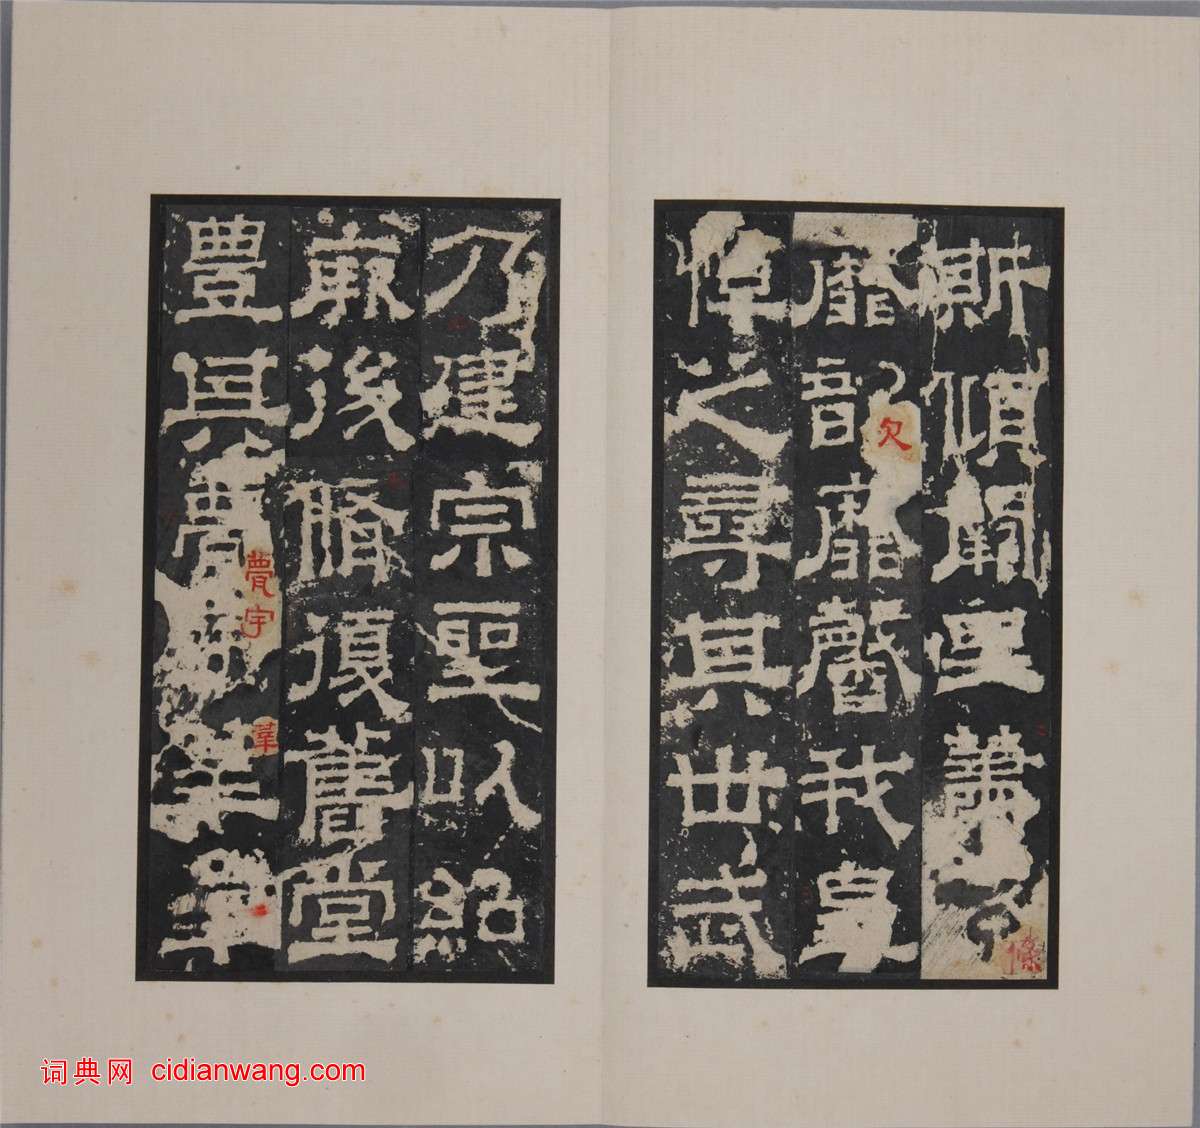 斯傾闕里蕭條
靡韶靡馨我皇
悼之尋其世武
乃建宗聖以紹
厥後脩復舊堂
豐其甍宇莘莘
條
欠
甍宇
莘
词典网 cidianwang.com